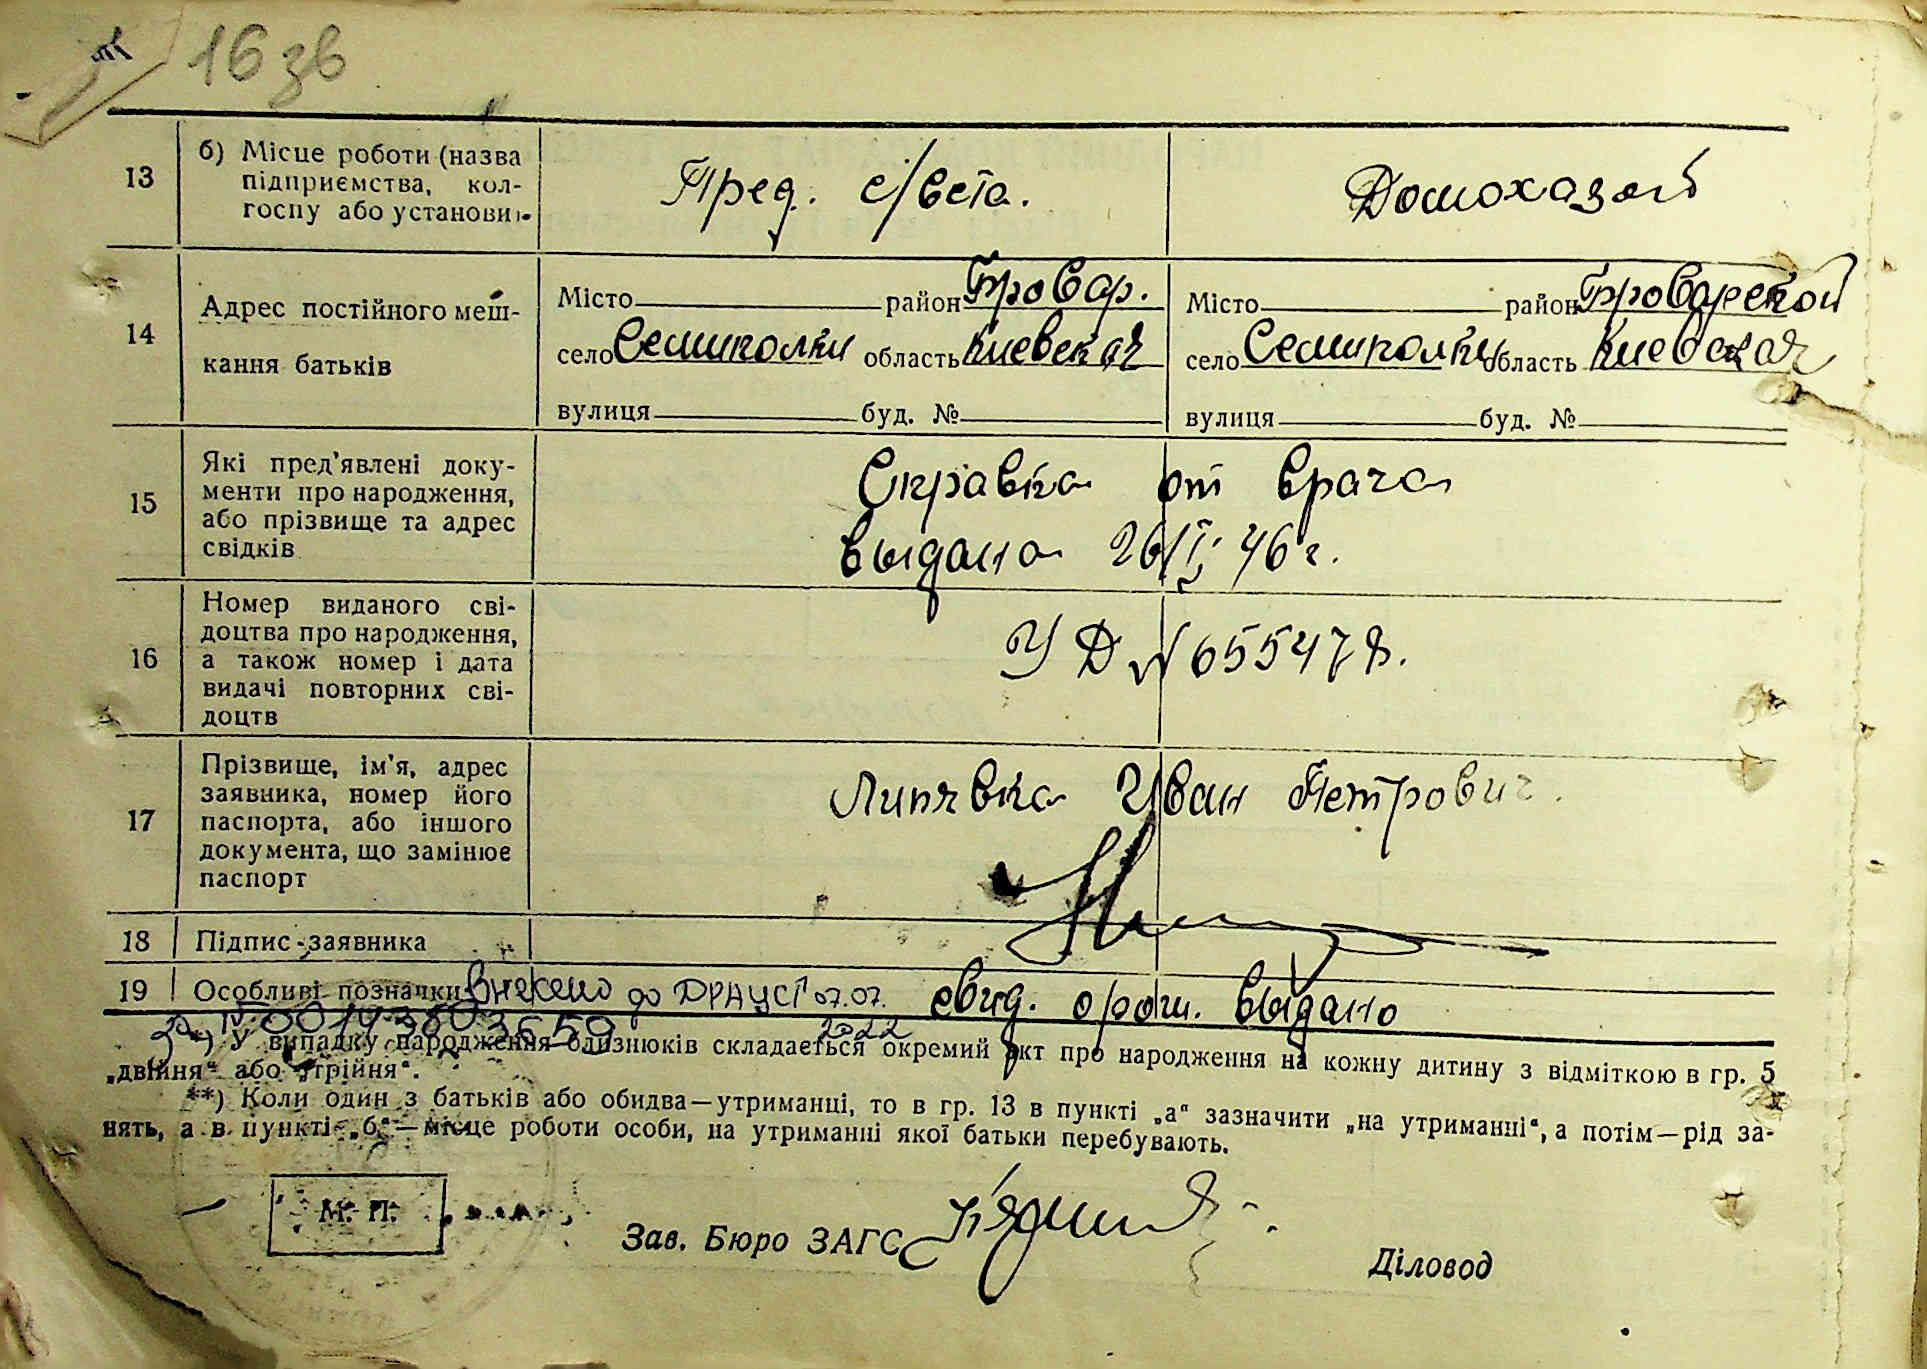 16 зв
13
б) Місце роботи (назва
підприємства, кол-
госпу або установи)
Пред. с/вета.
Домохазяй
14
Адрес постійного меш-
кання батьків
Місто район Бровар.
село Семиполки область Киевская
вулиця буд. №
Місто район Броварской
село Семиполки область Киевская
вулиця буд. №
15
Які пред'явлені доку-
менти про народження,
або прізвище та адрес
свідків
Справка от врача
выдана 26/I 46 г.
16
Номер виданого сві-
доцтва про народження,
а також номер і дата
видачі повторних сві-
доцтв
УД № 655478.
17
Прізвище, ім'я, адрес
заявника, номер його
паспорта, або іншого
документа, що замінює
паспорт
Липявка Иван Петрович.
18 Підпис заявника
19 Особливі позначки внесено до ДРАЦСГ 07.07.
2022
свид. о рож. выдано
*) У випадку народження близнюків складається окремий акт про народження на кожну дитину з відміткою в гр. 5
„двійня“ або „трійня“.
**) Коли один з батьків або обидва—утриманці, то в гр. 13 в пункті „а“ зазначити „на утриманні“, а потім—рід за-
нять, а в пункті „б“—місце роботи особи, на утриманні якої батьки перебувають.
М. П.
Зав. Бюро ЗАГС
Діловод